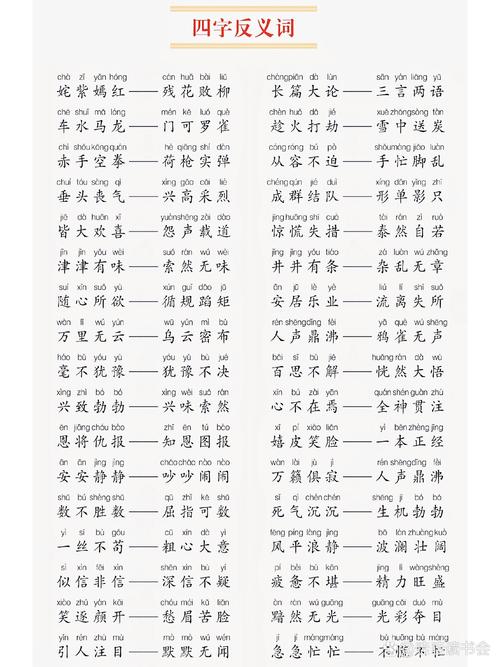 四字反义词
chà zǐ yān hóng cán huā bài liǔ
姹紫嫣红——残花败柳
chē shuǐ mǎ lóng mén kě luó què
车水马龙——门可罗雀
chì shǒu kōng quán hè qiāng shí dàn
赤手空拳——荷枪实弹
chuí tóu sàng qì xìng gāo cǎi liè
垂头丧气——兴高采烈
jiē dà huān xǐ yuàn shēng zài dào
皆大欢喜——怨声载道
jīn jīn yǒu wèi suǒ rán wú wèi
津津有味——索然无味
suí xīn suǒ yù xún guī dǎo jǔ
随心所欲——循规蹈矩
wàn lǐ wú yún wū yún mì bù
万里无云——乌云密布
háo bù yóu yù yóu yù bù jué
毫不犹豫——犹豫不决
xìng zhì bó bó xìng wèi suǒ rán
兴致勃勃——兴味索然
ēn jiāng chóu bào zhī ēn tú bào
恩将仇报——知恩图报
ān ān jìng jìng chǎo chǎo nào nào
安安静静——吵吵闹闹
shǔ bú shèng shǔ qū zhǐ kě shǔ
数不胜数——屈指可数
yì sī bù gǒu cū xīn dà yì
一丝不苟——粗心大意
sì xìn fēi xìn shēn xìn bù yí
似信非信——深信不疑
xiào zhú yán kāi chóu méi kǔ liǎn
笑逐颜开——愁眉苦脸
yǐn rén zhù mù mò mò wú wén
引人注目——默默无闻
cháng piān dà lùn sān yán liǎng yǔ
长篇大论——三言两语
chèn huǒ dǎ jié xuě zhōng sòng tàn
趁火打劫——雪中送炭
cóng róng bú pò shǒu máng jiǎo luàn
从容不迫——手忙脚乱
chéng qún jié duì xíng dān yǐng zhī
成群结队——形单影只
jīng huāng shī cuò tài rán zì ruò
惊慌失措——泰然自若
jǐng jǐng yǒu tiáo zá luàn wú zhāng
井井有条——杂乱无章
ān jū lè yè liú lí shī suǒ
安居乐业——流离失所
rén shēng dǐng fèi yā què wú shēng
人声鼎沸——鸦雀无声
bǎi sī bù jiě huǎng rán dà wù
百思不解——恍然大悟
xīn bú zài yān quán shén guàn zhù
心不在焉——全神贯注
xī pí xiào liǎn yì běn zhèng jīng
嬉皮笑脸——一本正经
wàn lài jù jì rén shēng dǐng fèi
万籁俱寂——人声鼎沸
sǐ qì chén chén shēng jī bó bó
死气沉沉——生机勃勃
fēng píng làng jìng bō lán zhuàng kuò
风平浪静——波澜壮阔
pí bèi bù kān jīng lì wàng shèng
疲惫不堪——精力旺盛
àn rán wú guāng guāng cǎi duó mù
黯然无光——光彩夺目
jí jí máng máng bù huāng bù máng
急急忙忙——不慌不忙